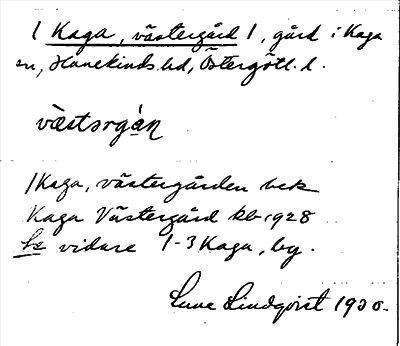 1 Kaga, västergård 1, gård i Kaga
sn, Hanekinds hd, Östergötl. l.
västərgán
1 Kaga, västergården bek
Kaga Västergård kb 1928
Se vidare 1-3 Kaga, by.
Sune Lindqvist 1930.